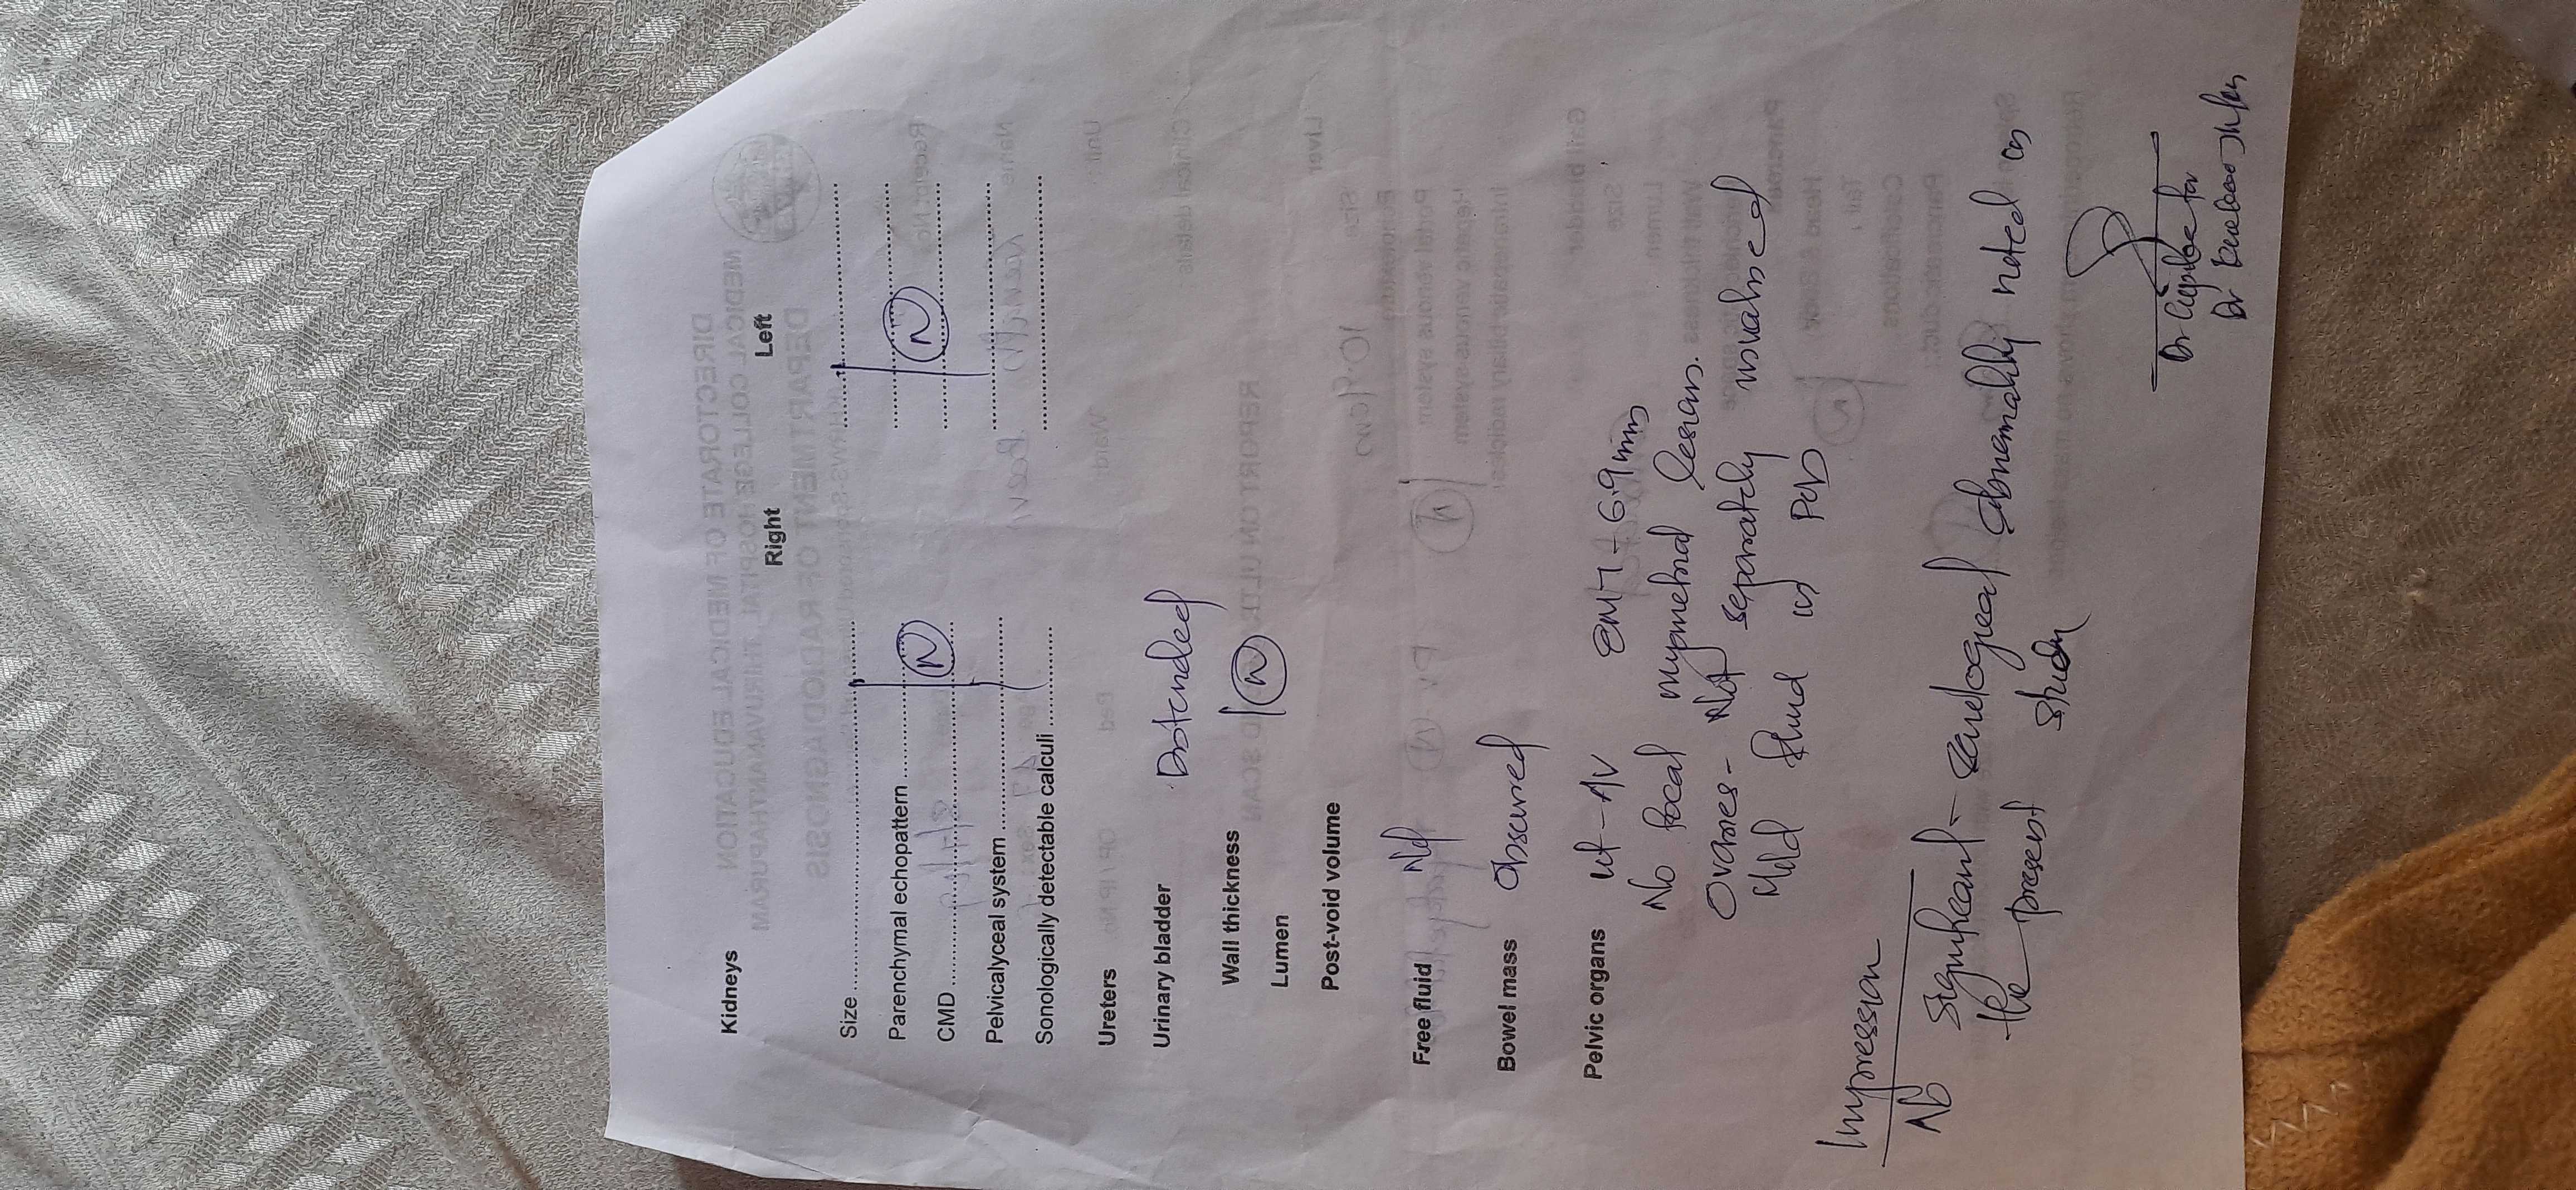 Kidneys
Right Left
Size
Parenchymal echopattern N N
CMD
Pelvicalyceal system
Sonologically detectable calculi
Ureters
Urinary bladder Distended
Wall thickness N
Lumen
Post-void volume
Free fluid Nil
Bowel mass Obscured
Pelvic organs Ut - AV EMT - 6.9mm
No focal myometrial lesions.
Ovaries - Not separately visualised
Mild fluid in POD
Impression
No significant sonological abnormality noted in
the present study
Dr
Dr